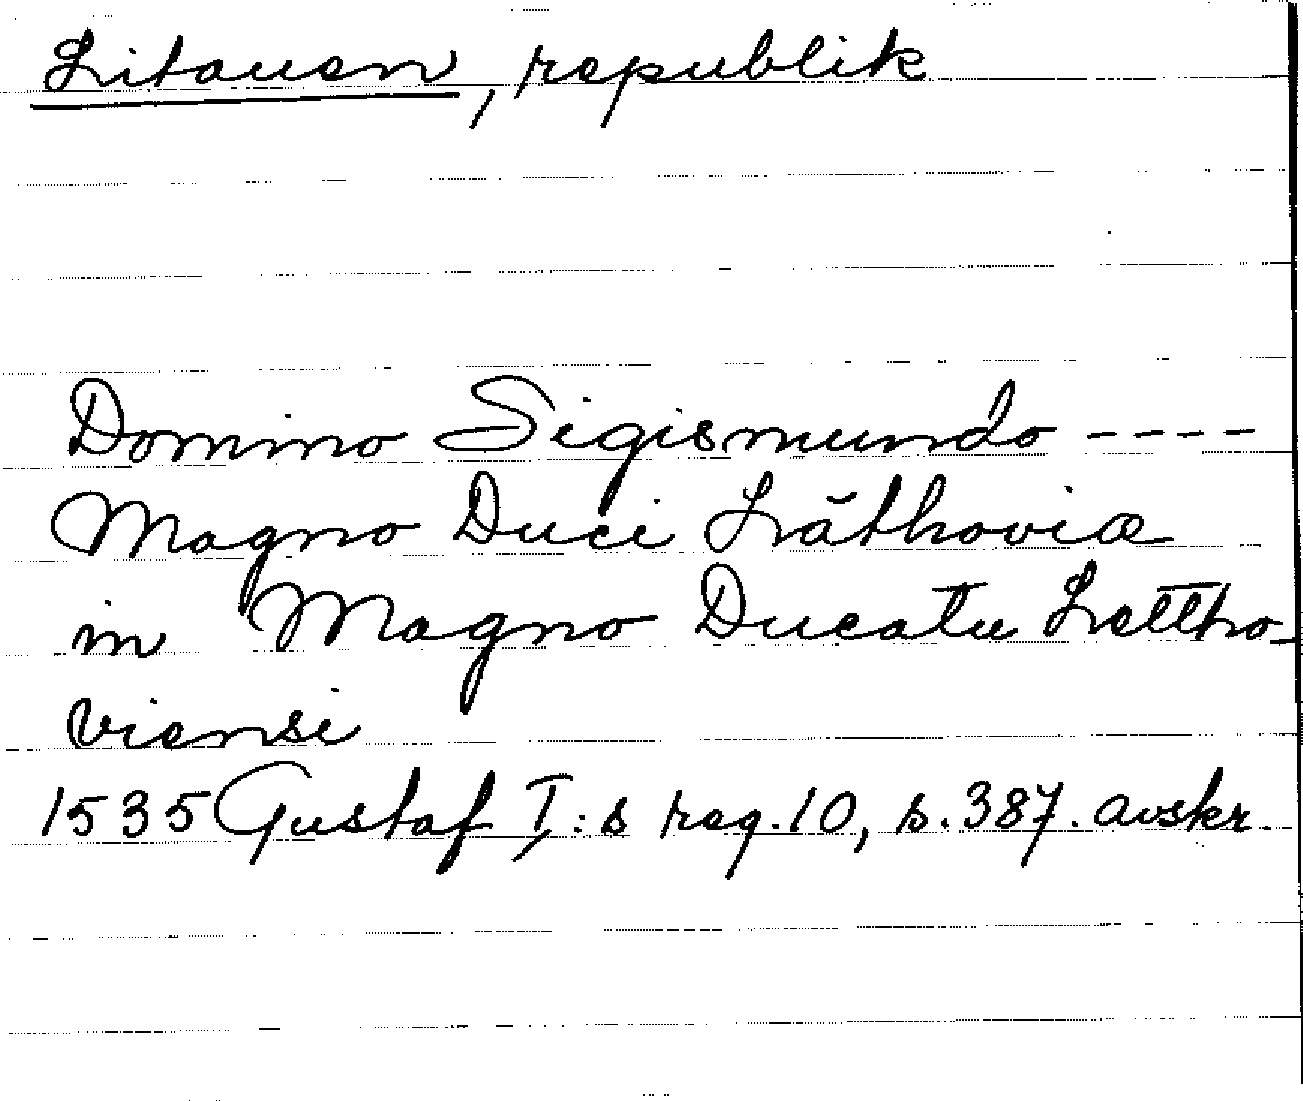 Litauen, republik
Domino Sigismundo ----
Magno Duci Lăthoviæ
in Magno Ducatu Lettho-
viensi
1535 Gustaf I:s reg. 10, s. 387. avskr